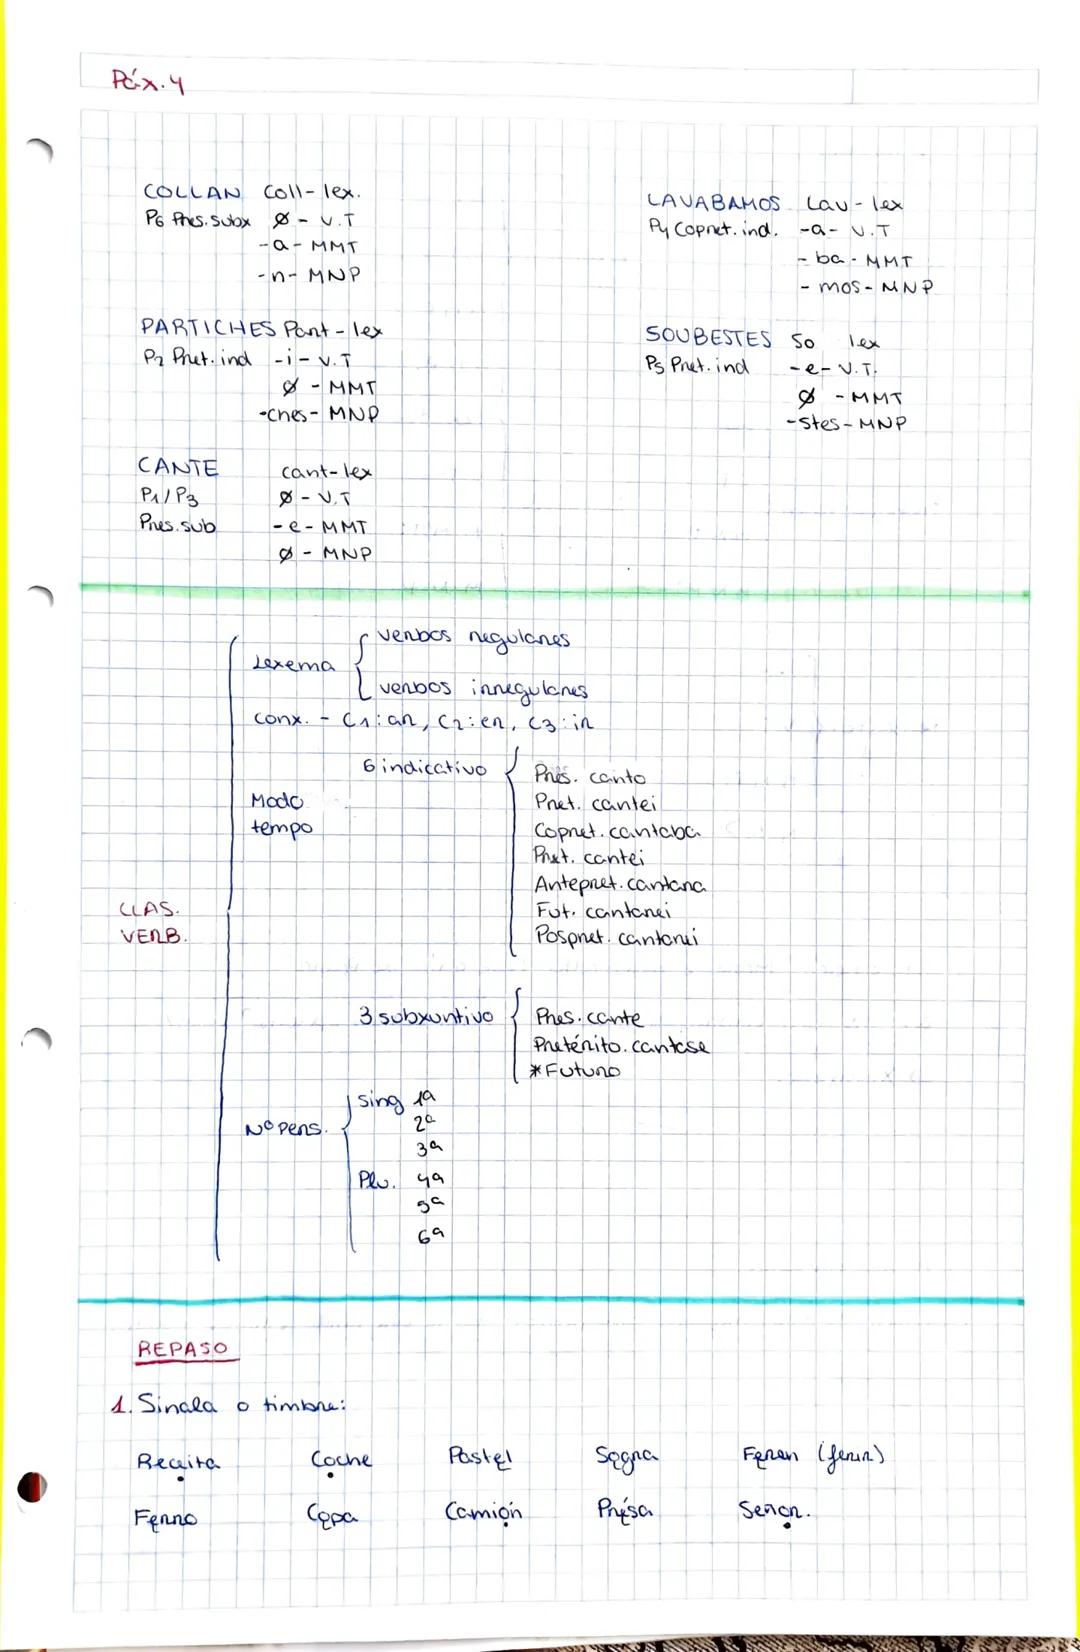 Páx. 4
COLLAN Coll- lex.
P6 Pres. Subx Ø - V.T
-a- MMT
-n- MNP
LAVABAMOS Lav - lex
P4 Copret. ind. -a- V.T
- ba - MMT
- mos - MNP
PARTICHES Part - lex
P2 Pret. ind -i- V.T
Ø - MMT
-ches- MNP
SOUBESTES So lex
P5 Pret. ind -e- V.T.
Ø - MMT
-stes- MNP
CANTE cant- lex
P1/P3 Ø - V.T
Pres. sub -e- MMT
Ø - MNP
CLAS.
VERB.
Lexema
verbos regulares
verbos irregulares
conx. - C1: ar, C2: er, C3: ir
Modo
tempo
6 indicativo
Pres. canto
Pret. cantei
Copret. cantaba
Pret. cantei
Antepret. cantara
Fut. cantarei
Pospret. cantarei
3 subxuntivo
Pres. cante
Pretérito. cantase
*Futuro
Nº pers.
sing 1ª
2ª
3ª
Plu. 4ª
5ª
6ª
REPASO
1. Sinala o timbre:
Receita Coche Pastel Sogra Feren (ferir)
Ferro Copa Camión Présa Señor.